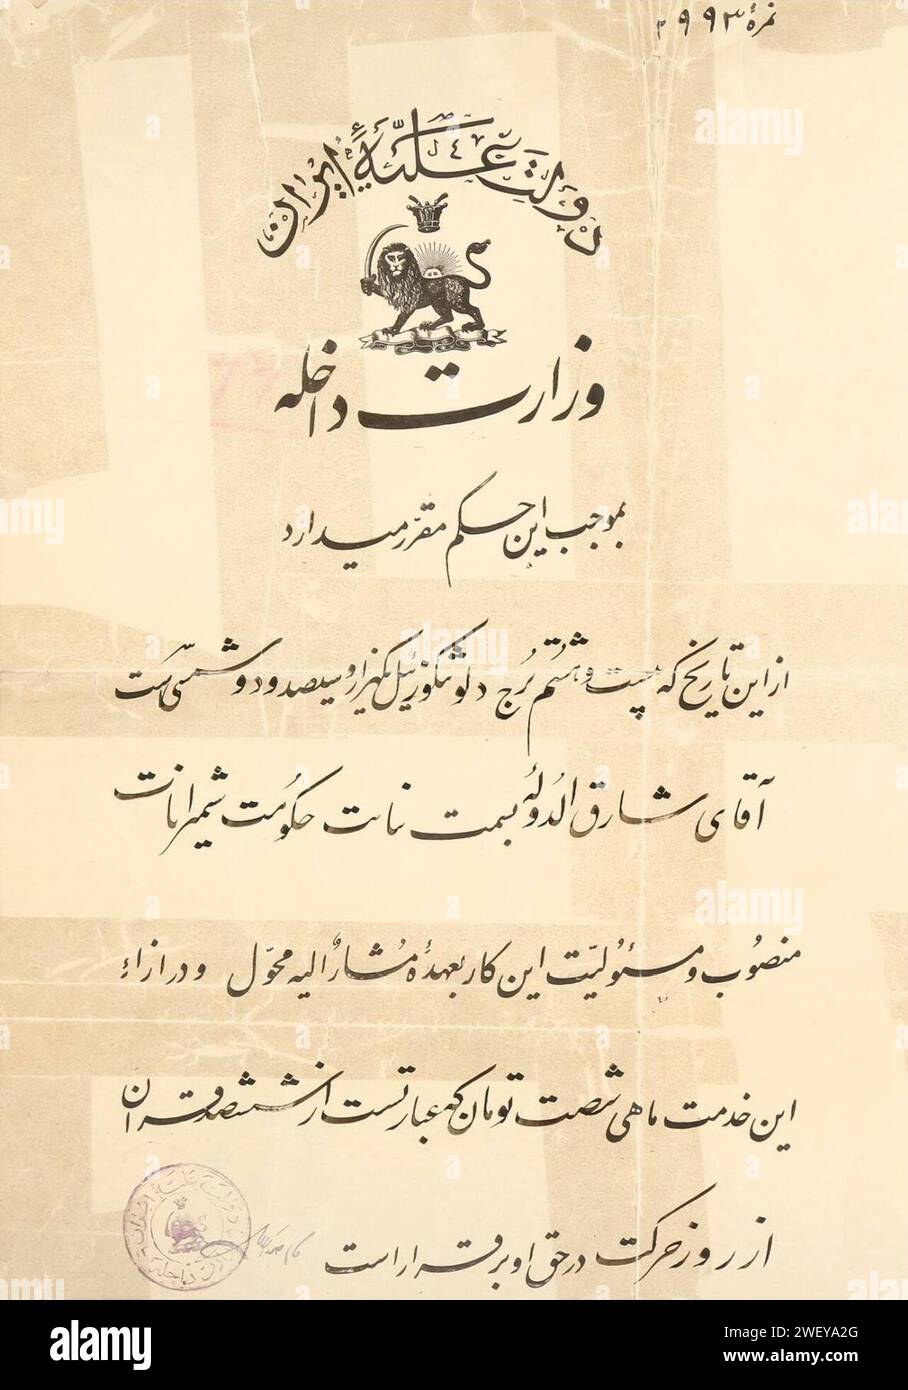 نمرهٔ ۲۹۹۳
دولت علیّهٔ ایران
وزارت داخله
بموجب این حکم مقرّر میدارد
از این تاریخ که بیست و هشتم بُرج دلو تنگوزئیل یکهزار و سیصد و دو شمسی است
آقای شارق الدوله بسمت نیابت حکومت شمیرانات
منصوب و مسئولیّت این کار بعهدهٔ مُشارٌالیه محوّل و در ازاءِ
این خدمت ماهی شصت تومان که عبارتست از ششصد قران
از روز حرکت در حق او برقرار است
دولت علیّه ایران
وزارت داخله
alamy
Image ID: 2WEYA2G
www.alamy.com